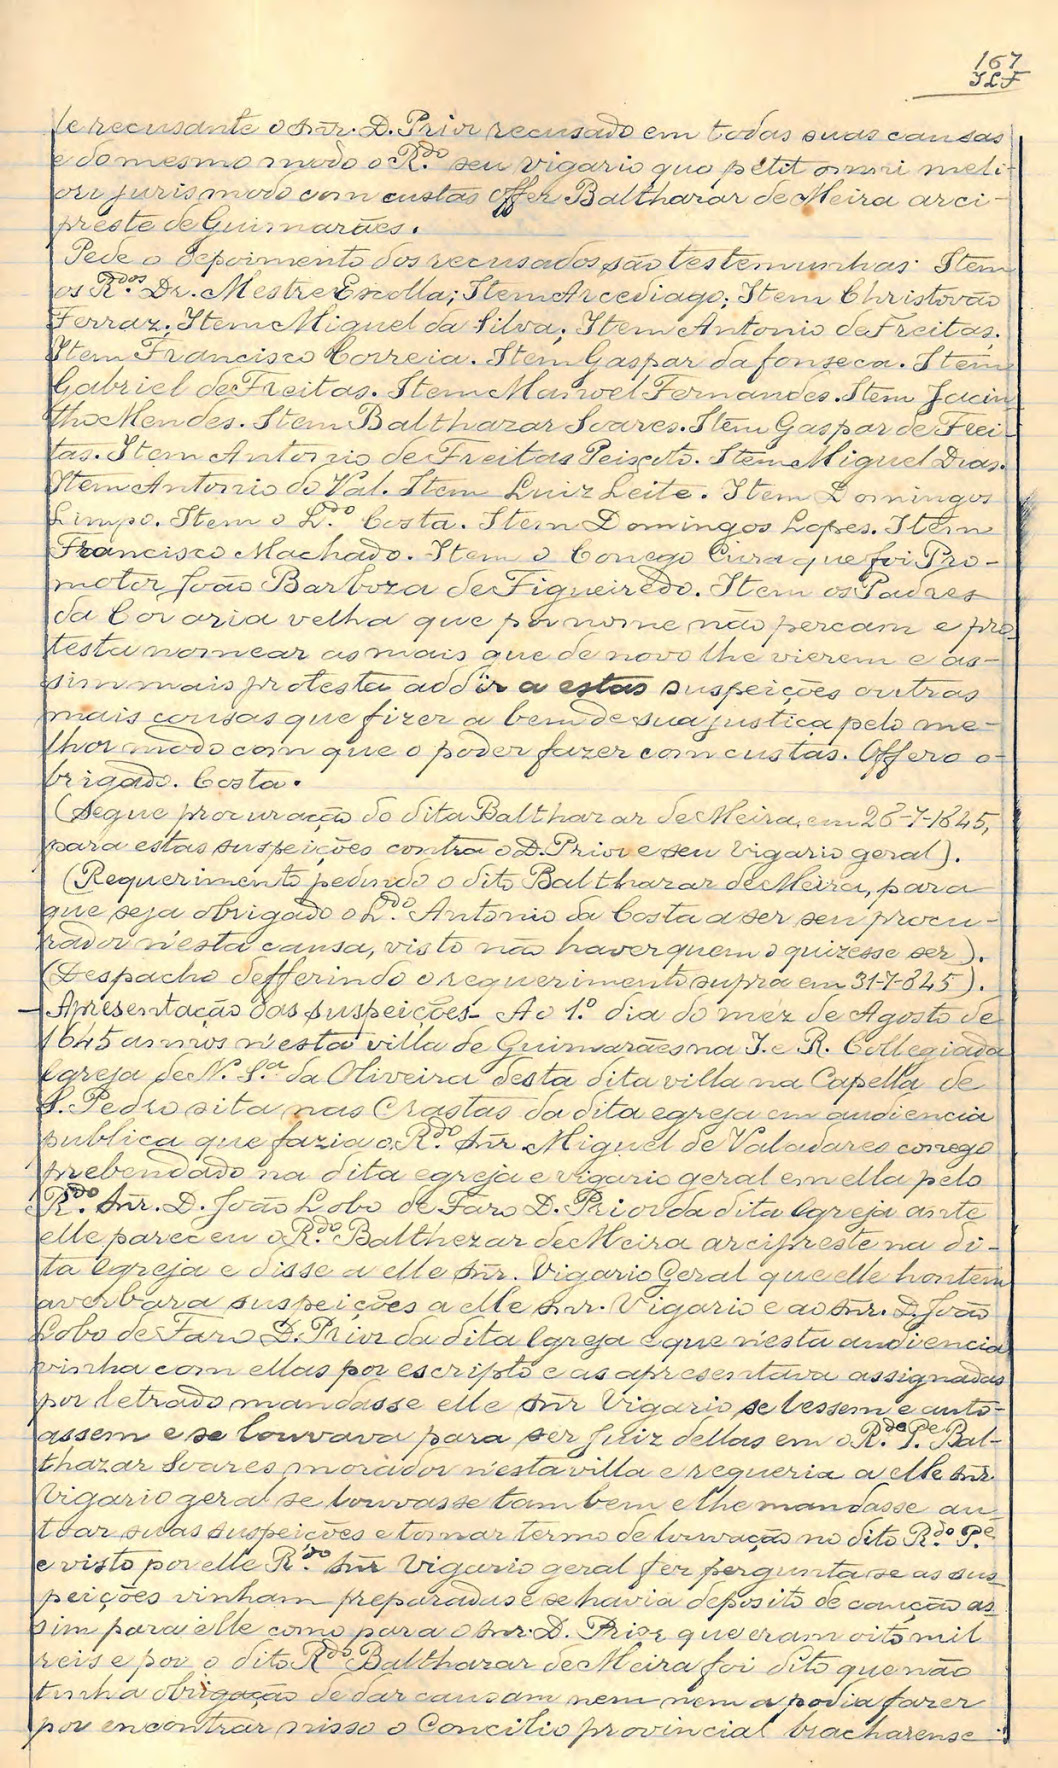 167
JLF
le recusante o Snr. D. Prior recusado em todas suas causas
e do mesmo modo o R.do seu vigario quo petit omni meli-
ori juris modo com custas Offer Balthazar de Meira arci-
preste de Guimarães.
Pede o depoimento dos recusados são testemunhas: Item
os R.dos Dr. Mestre Escolla; Item Arcediago; Item Christovão
Ferraz; Item Miguel da Silva; Item Antonio de Freitas.
Item Francisco Correia. Item Gaspar da fonseca. Item
Gabriel de Freitas. Item Manoel Fernandes. Item Jacin
tho Mendes. Item Balthazar Soares. Item Gaspar de Frei-
tas. Item Antonio de Freitas Peixoto. Item Miguel Dias.
Item Antonio do Val. Item Luiz Leite. Item Domingos
Limpo. Item o L.do Costa. Item Domingos Lopes. Item
Francisco Machado. Item o Conego Cura que foi Pro-
motor João Barboza de Figueiredo. Item os Padres
da Coraria velha que por nome não percam e pro-
testa nomear as mais que de novo lhe vierem e as-
sim mais protesta addir a estas suspeições outras
mais cousas que fizer a bem de sua justiça pelo me-
lhor modo com que o poder fazer com custas. Offero o-
brigado. Costa.
(Segue procuração do dita Balthazar de Meira, em 26-7-1645,
para estas suspeições contra o D. Prior e seu Vigario geral).
(Requerimento pedindo o dito Balthazar de Meira, para
que seja obrigado o L.do Antonio da Costa a ser seu procu-
rador n'esta causa, visto não haver quem o quizesse ser).
(Despacho defferindo o requerimento supra em 31-7-645).
- Apresentação das suspeições - Ao 1.º dia do mez de Agosto de
1645 annos n'esta villa de Guimarães na I. e R. Collegiada
Egreja de N. S.ra da Oliveira desta dita villa na Capella de
S. Pedro sita nas Crastas da dita egreja em audiencia
publica que fazia o R.do Snr. Miguel de Valadares conego
prebendado na dita egreja e vigario geral em ella pelo
R.do Snr. D. João Lobo de Faro D. Prior da dita Egreja ante
elle pareceu o R.do Balthezar de Meira arcipreste na di-
ta Egreja e disse a elle Snr. Vigario Geral que elle hontem
averbara suspeições a elle Snr. Vigario e ao Snr. D. João
Lobo de Faro D. Prior da dita Egreja e que n'esta audiencia
vinha com ellas por escripto e as apresentava assignadas
por letrado mandasse elle Snr Vigario se lessem e auto-
assem e se louvava para ser juiz dellas em o R.do P.e Bal-
thazar Soares morador n'esta villa e requeria a elle Snr.
Vigario geral se louvasse tambem e lhe mandasse au
toar suas suspeições e tomar termo de louvação no dito R.do P.e
e visto por elle R.do Snr Vigario geral fez pergunta se as sus-
peições vinham preparadas e se havia deposito de caução as-
sim para elle como para o Snr. D. Prior que eram oito mil
reis e por o dito R.do Balthazar de Meira foi dito que não
tinha obrigação de dar causam nem nem a podia fazer
por encontrar nisso o Concilio provincial bracharense